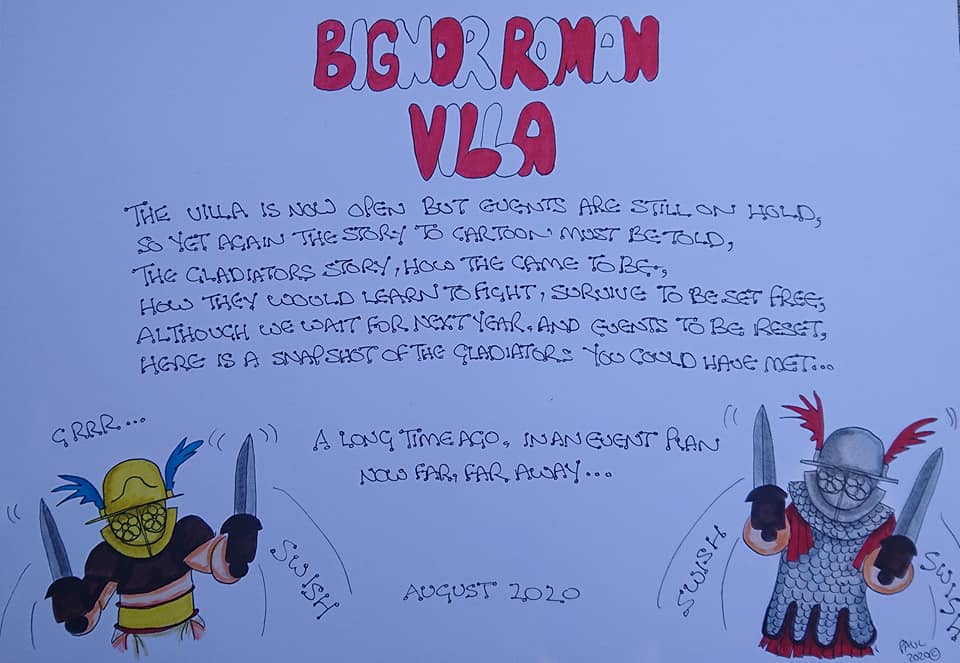 BIGNOR ROMAN
VILLA
THE VILLA IS NOW OPEN BUT EVENTS ARE STILL ON HOLD,
SO YET AGAIN THE STORY TO CARTOON MUST BE TOLD,
THE GLADIATORS STORY, HOW THE CAME TO BE.,
HOW THEY WOULD LEARN TO FIGHT, SURVIVE TO BE SET FREE,
ALTHOUGH WE WAIT FOR NEXT YEAR, AND EVENTS TO BE RESET,
HERE IS A SNAPSHOT OF THE GLADIATORS YOU COULD HAVE MET...
GRRR...
A LONG TIME AGO, IN AN EVENT PLAN
NOW FAR, FAR AWAY...
SWISH
SWISH
SWISH
AUGUST 2020
PAUL
2020©